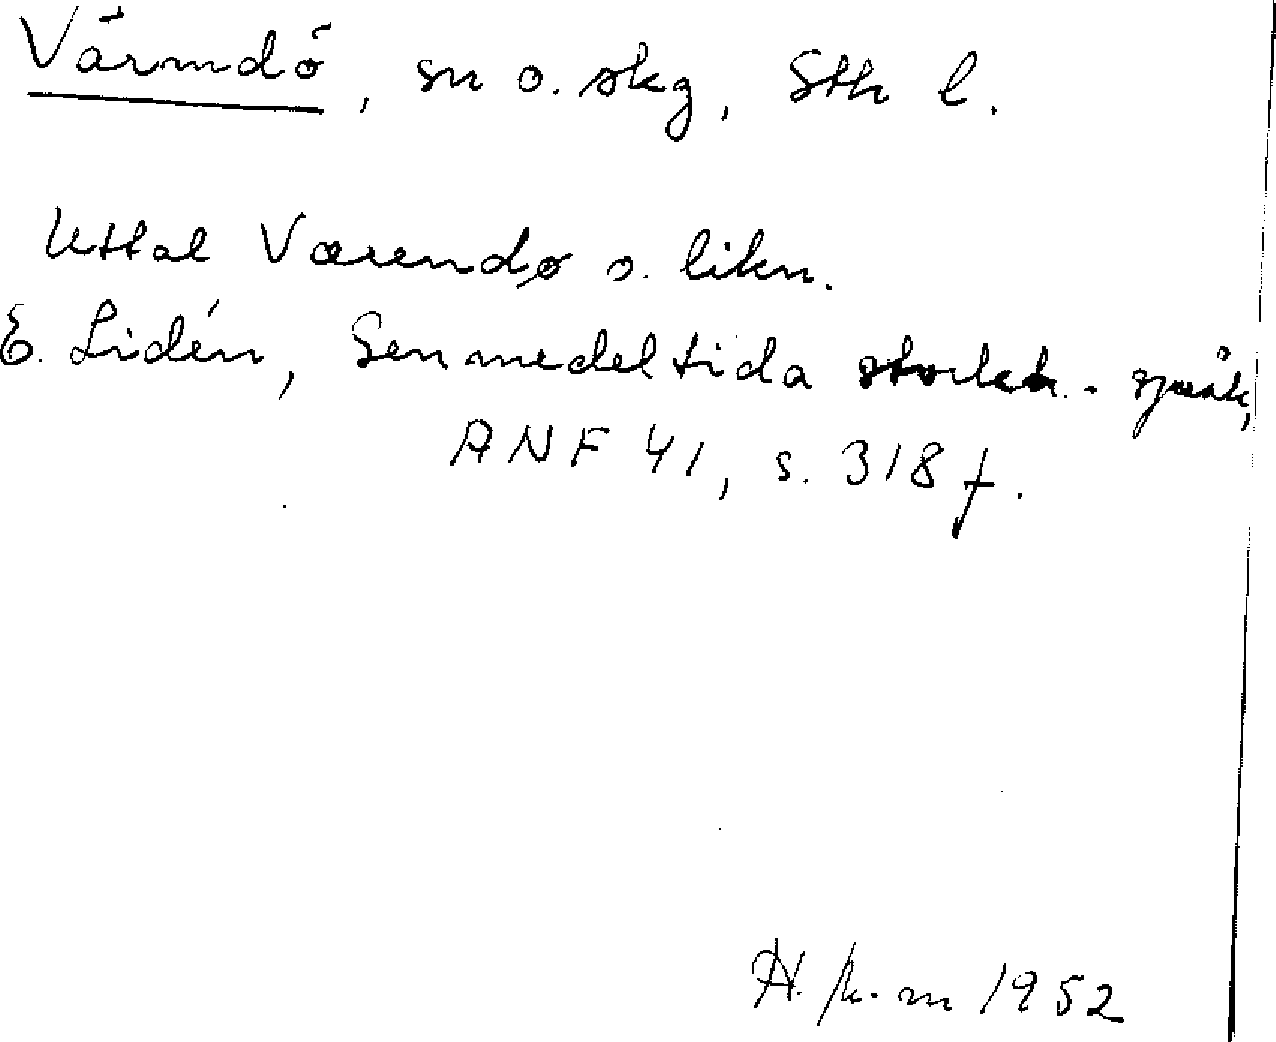 Värmdö, sn o. skg, Sth l.
Uttal Værendø o. likn.
E. Lidén, Senmedeltida stockh.-språk,
ANF 41, s. 318 f.
1952